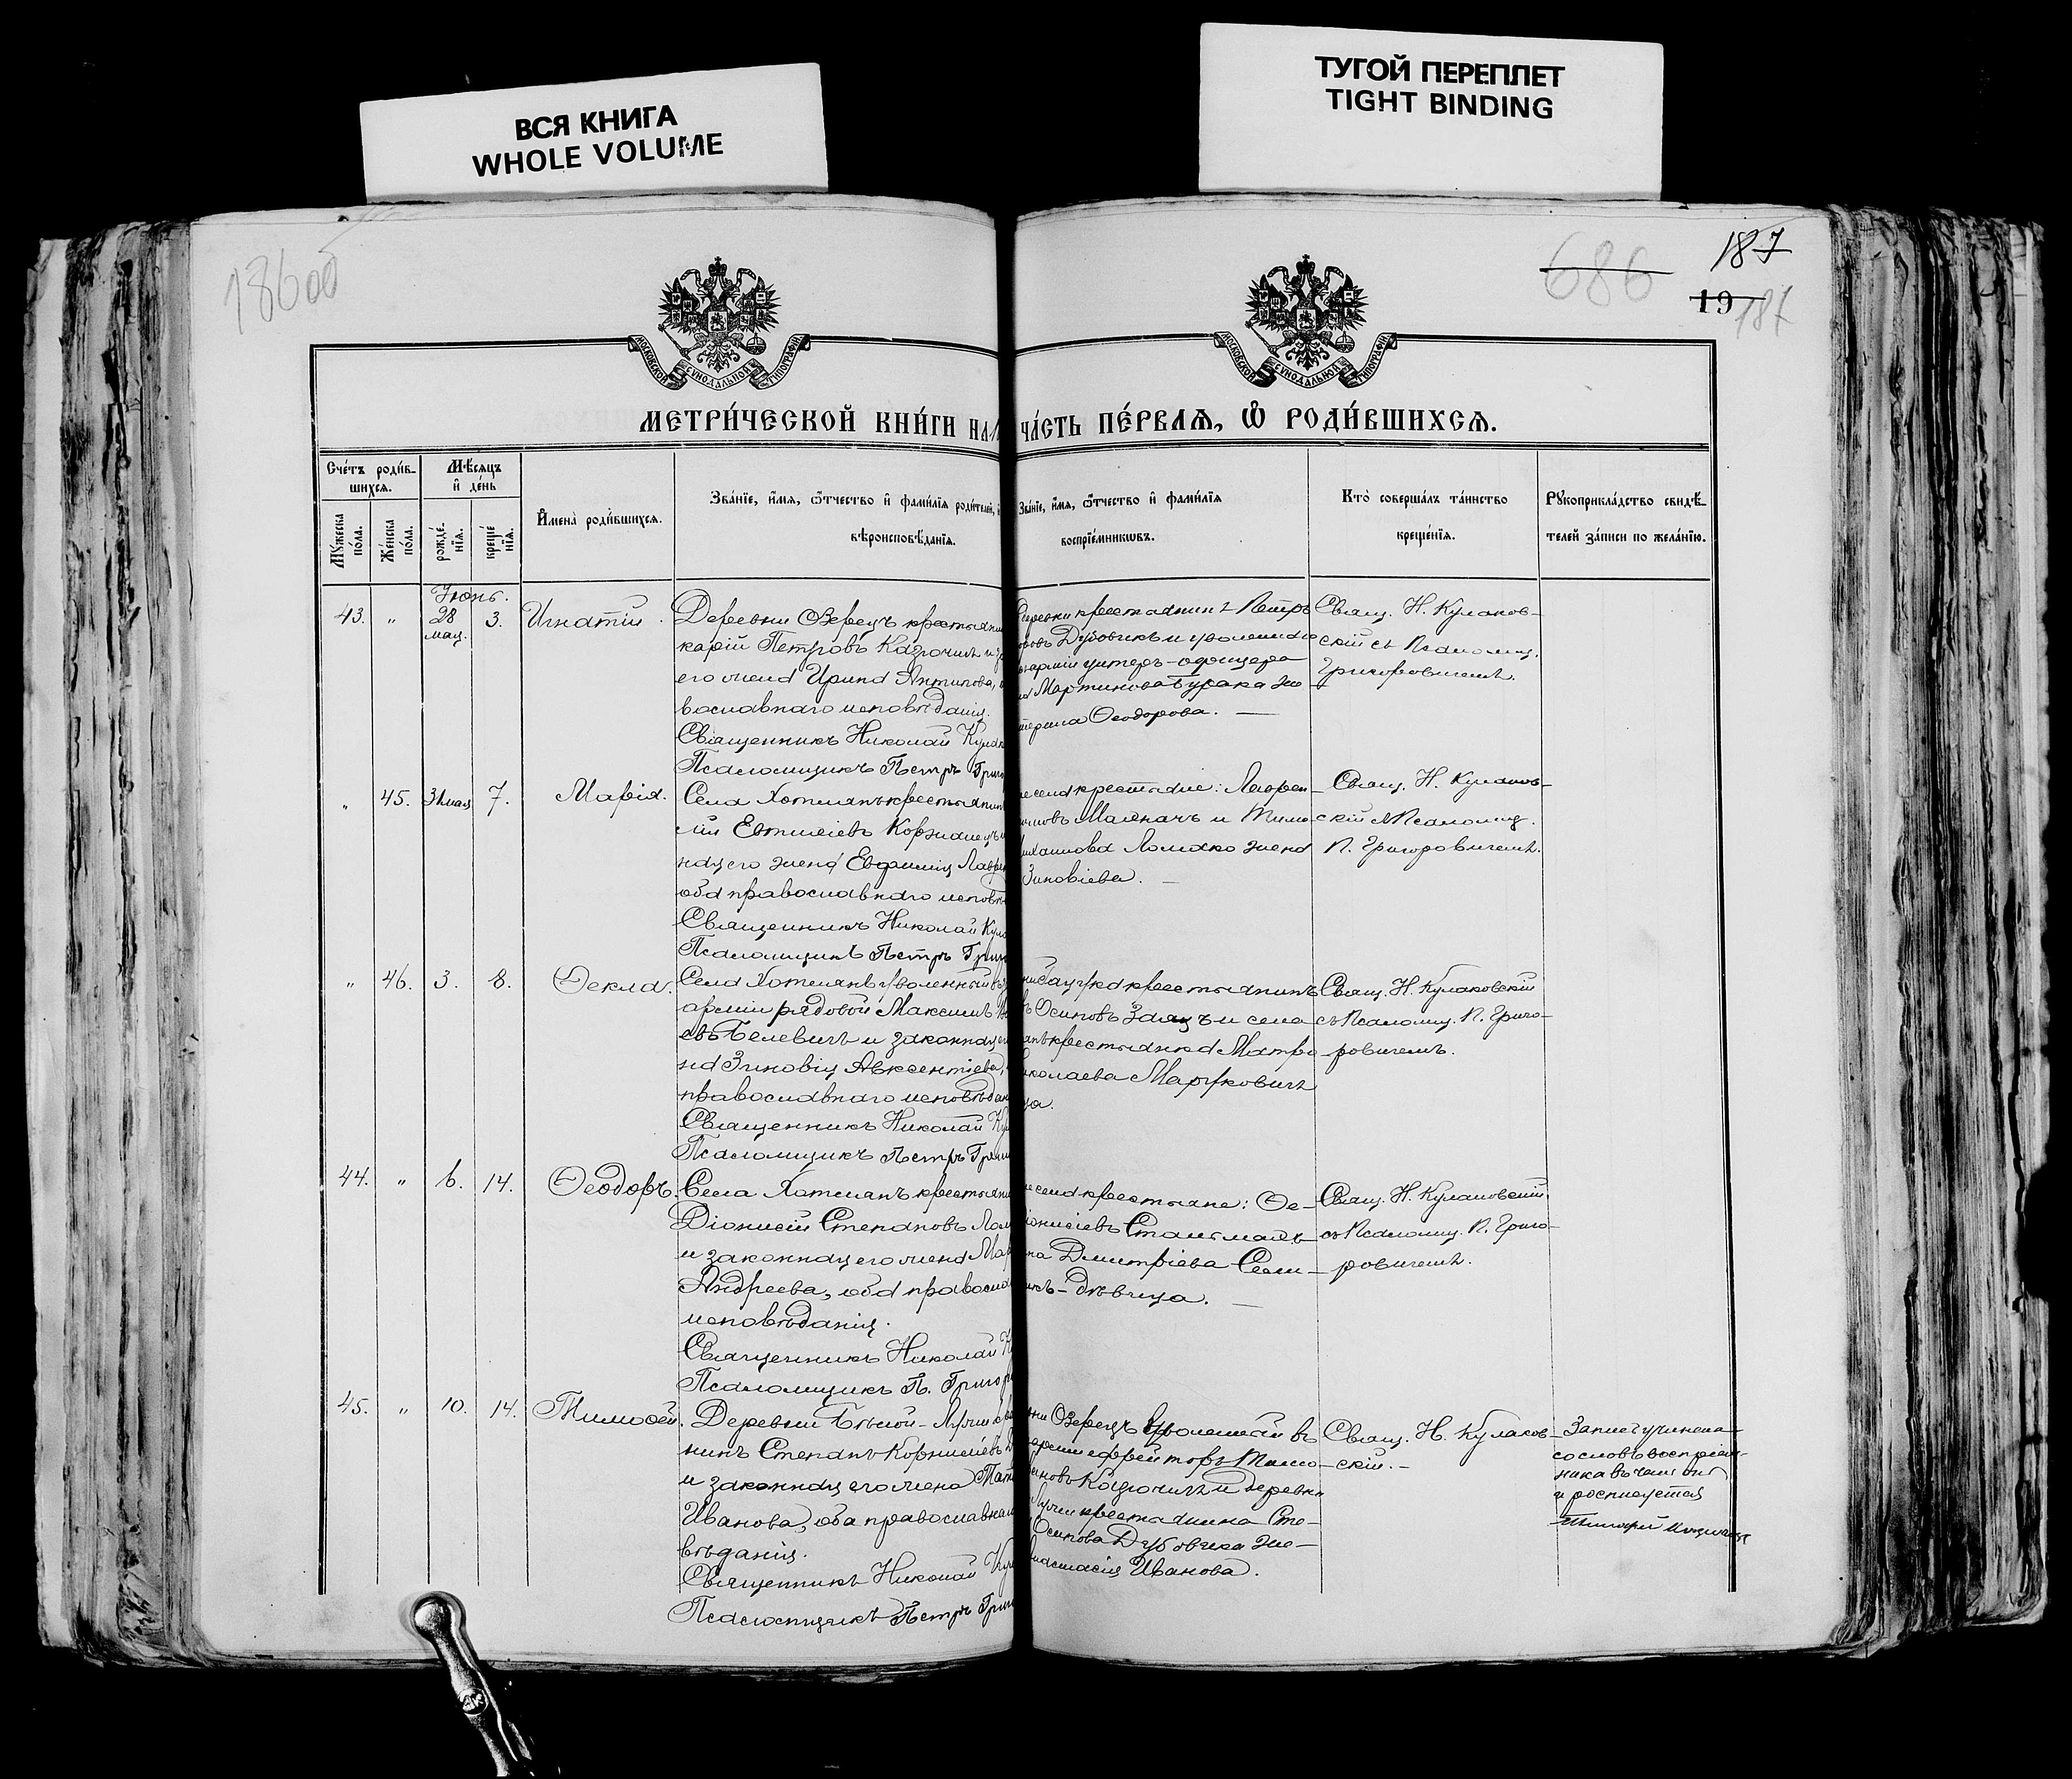 ВСЯ КНИГА
WHOLE VOLUME
ТУГОЙ ПЕРЕПЛЕТ
TIGHT BINDING
18600
686
187
19
187
МОСКОВСКОЙ СѴНОДАЛЬНОЙ ТИПОГРАФІИ
МОСКОВСКОЙ СѴНОДАЛЬНОЙ ТИПОГРАФІИ
МЕТРИ́ЧЕСКОЙ КНИ́ГИ НА
ЧА́СТЬ ПЕ́РВАѦ, Ѿ РОДИ́ВШИХСѦ.
Сче́тъ роди́в-
шихсѧ.
Мѣ́сѧцъ
и҆ де́нь
Мꙋ́жеска по́ла.
Же́нска по́ла.
рожде́-нїѧ.
креще́нїѧ.
И҆мена̀ роди́вшихсѧ.
Зва́нїе, и҆́мѧ, ѻ҆́тчество и҆ фами́лїѧ роди́телей,
вѣроисповѣ́данїѧ.
Зва́нїе, и҆́мѧ, ѻ҆́тчество и҆ фами́лїѧ
воспрїе́мникѡвъ.
Кто̀ соверша́лъ та́инство
креще́нїѧ.
Рꙋкоприкла́дство свидѣ́-
телей за́писи по жела́нїю.
Іюнь.
43. " 28 мая 3. Игнатій.
Деревни Озерецъ крестьянин
карій Петровъ Казючиць и за
его жена Ирина Антипова,
вославнаго исповѣданія.
Священникъ Николай Кулак
Псаломщикъ Петръ Григ
деревни крестьянинъ Петръ
Дубовикъ и уволеннаго
арміи унтеръ-офицера
Мартинова Бусака же-
терина Ѳеодорова. —
Свящ. Н. Кулаков-
скій съ Псаломщ.
Григоровичемъ.
" 45. 31 мая 7. Марія.
Села Хотлянъ крестьянин
лій Евтихіевъ Коржанецъ
ная его жена Евфимія Лавре
оба православнаго исповѣ
Священникъ Николай Кула
Псаломщикъ Петръ Григ
села крестьяне: Лаврен-
Малянъ и Тимо
Ломако жена
Зиновіева. —
Свящ. Н. Кулаков-
скій съ Псаломщ.
П. Григоровичемъ.
" 46. 3. 8. Ѳекла.
Села Хотлянъ уволенный въ
арміи рядовой Максимъ
евъ Белевичъ и законная ег
на Зиновія Авксентіева,
православнаго исповѣдан
Священникъ Николай Ку
Псаломщикъ Петръ Григ
крестьянинъ
Осиповъ Заяцъ и села
крестьянка Матро
иколаева Марковичъ
ца.
Свящ. Н. Кулаковскій
съ Псаломщ. П. Григо-
ровичемъ.
44. " 6. 14. Ѳеодоръ.
Села Хотлянъ крестьяни
Діонисій Степановъ Лом
и законная его жена Мар
Андреева, оба православ
исповѣданія.
Священникъ Николай К
Псаломщикъ П. Григор
села крестьяне: Ѳе-
іонисіевъ
на Дмитріева Сели-
икъ-дѣвица. —
Свящ. Н. Кулаковскій
съ Псаломщ. П. Григо-
ровичемъ.
45. " 10. 14. Тимоѳей.
Деревни Бѣлой-Лужи кре
нинъ Степанъ Корниліевъ Д
и законная его жена Тат
Иванова, оба православнаго
вѣданія.
Священникъ Николай Кул
Псаломщикъ Петръ Григ
Озерецъ уволенный въ
арміи ефрейторъ Тимо-
Казючиць и деревни
Лужи крестьянина Сте-
Осипова Дубовика же-
настасія Иванова.
Свящ. Н. Кулаков-
скій. -
Запись учинена
со словъ воспріем-
ника въ чемъ онъ
и росписуется
Тимофей Казючицъ